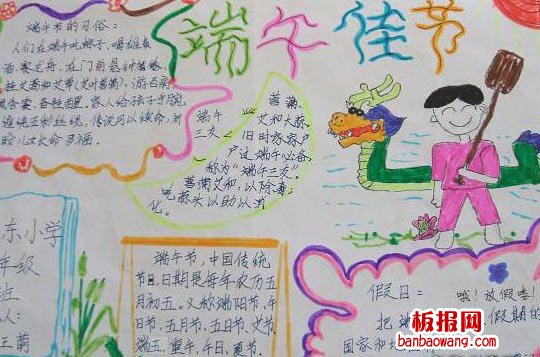 端午佳节
端午节的习俗：
人们在端午吃粽子、喝雄黄
酒、赛龙舟、在门前悬钟馗像
挂艾条和艾草（艾叶菖蒲）、游百病
佩香囊、备牲醴、
五色丝线，传说可以续命，
儿女长命多福。
端午
三友
菖蒲、
艾和大蒜，
旧时
户过端午必备，
称为“端午三友”
菖蒲艾和，以除毒；
吃蒜头以助以消
化。
东小学
年级
班
端午节，中国传统
节日，日期是每年农历五
月初五。又称端阳节、午
日节、五月节、五日节、艾节、
端五、重午、午日、夏节，
假日：哦！放假喽！
假期的
国家和
板报网
banbaowang.com